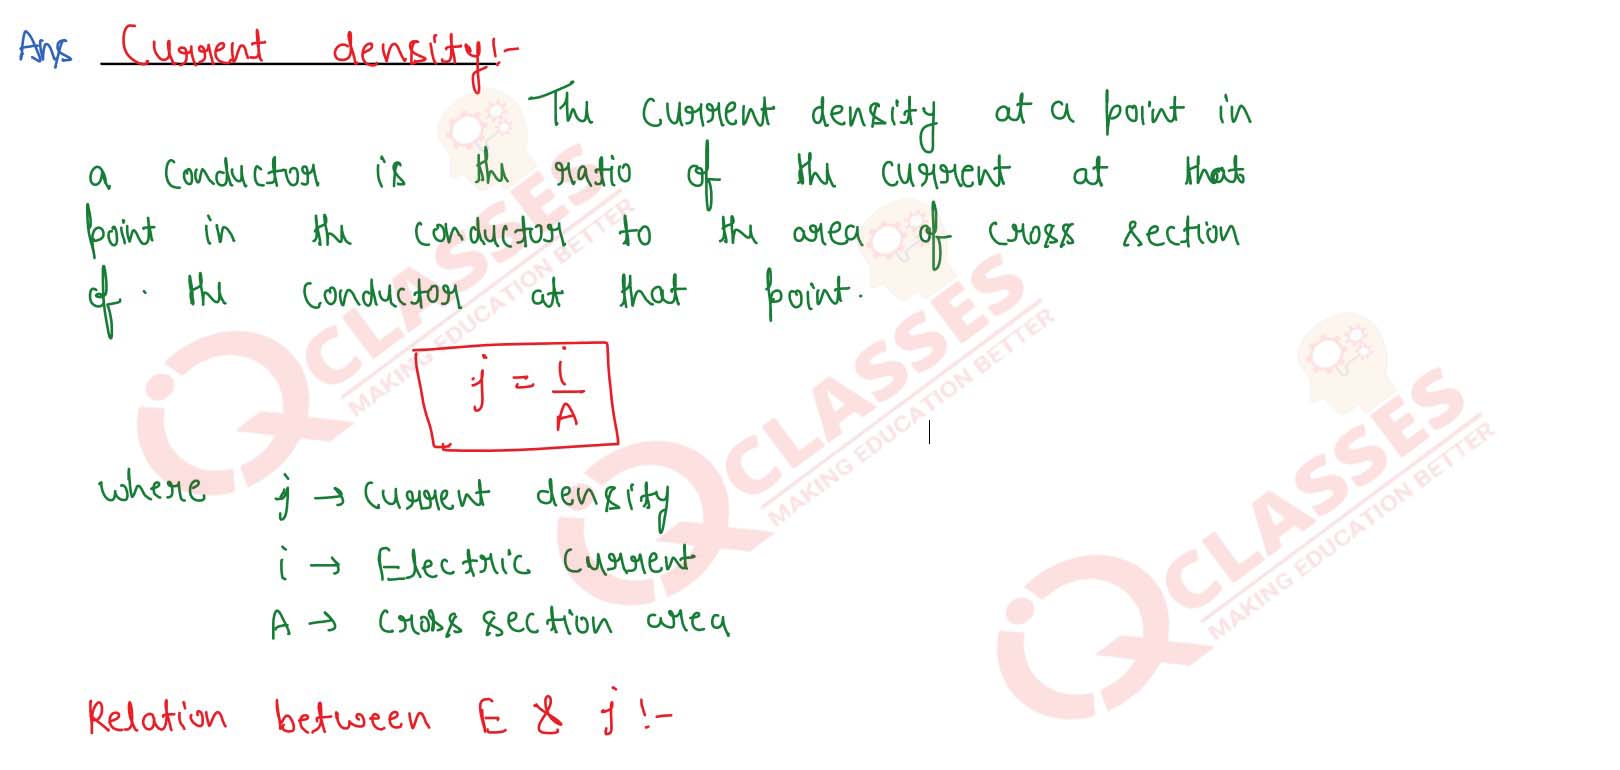 Ans Current density:-
The current density at a point in
a conductor is the ratio of the current at that
point in the conductor to the area of cross section
of . the conductor at that point.
j = i/A
where j → current density
i → Electric current
A → cross section area
Relation between E & j :-
iQ CLASSES
MAKING EDUCATION BETTER
iQ CLASSES
MAKING EDUCATION BETTER
iQ CLASSES
MAKING EDUCATION BETTER